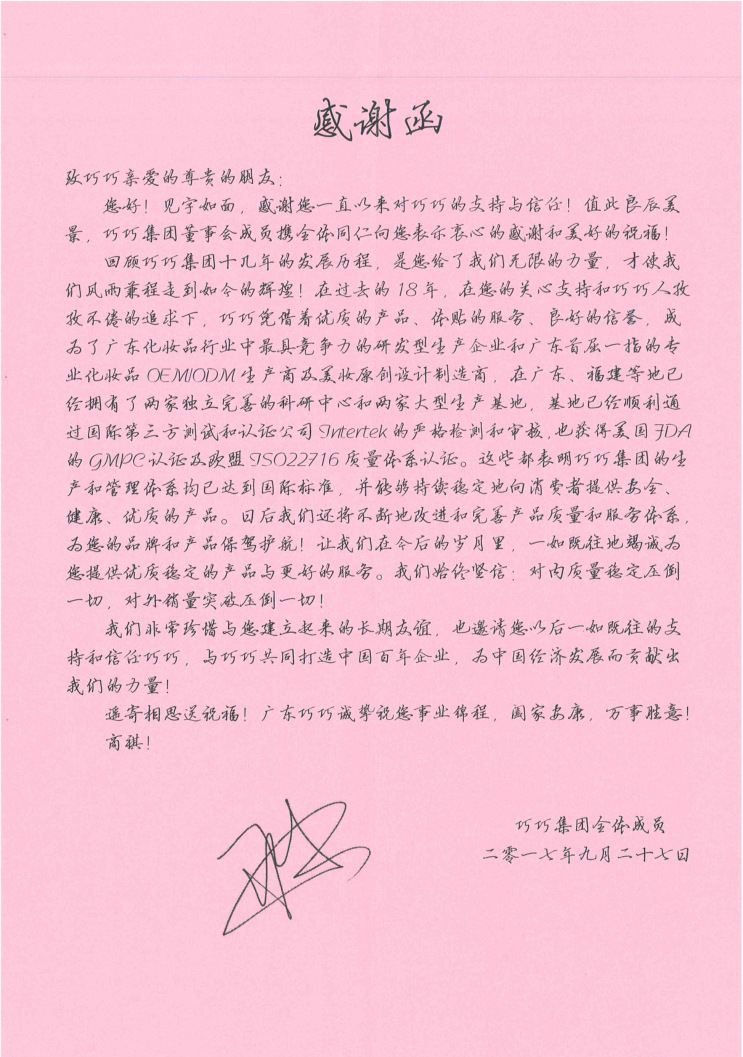 感谢函
致巧巧亲爱的尊贵的朋友：
您好！见字如面，感谢您一直以来对巧巧的支持与信任！值此良辰美
景，巧巧集团董事会成员携全体同仁向您表示衷心的感谢和美好的祝福！
回顾巧巧集团十几年的发展历程，是您给了我们无限的力量，才使我
们风雨兼程走到如今的辉煌！在过去的18年，在您的关心支持和巧巧人孜
孜不倦的追求下，巧巧凭借着优质的产品、体贴的服务、良好的信誉，成
为了广东化妆品行业中最具竞争力的研发型生产企业和广东首屈一指的专
业化妆品OEM/ODM生产商及美妆原创设计制造商，在广东、福建等地已
经拥有了两家独立完善的科研中心和两家大型生产基地，基地已经顺利通
过国际第三方测试和认证公司Intertek的严格检测和审核,也获得美国FDA
的GMPC认证及欧盟ISO22716质量体系认证。这些都表明巧巧集团的生
产和管理体系均已达到国际标准，并能够持续稳定地向消费者提供安全、
健康、优质的产品。日后我们还将不断地改进和完善产品质量和服务体系，
为您的品牌和产品保驾护航！让我们在今后的岁月里，一如既往地竭诚为
您提供优质稳定的产品与更好的服务。我们始终坚信：对内质量稳定压倒
一切，对外销量突破压倒一切！
我们非常珍惜与您建立起来的长期友谊，也邀请您以后一如既往的支
持和信任巧巧，与巧巧共同打造中国百年企业，为中国经济发展而贡献出
我们的力量！
遥寄相思送祝福！广东巧巧诚挚祝您事业锦程，阖家安康，万事胜意！
商祺！
巧巧集团全体成员
二零一七年九月二十七日